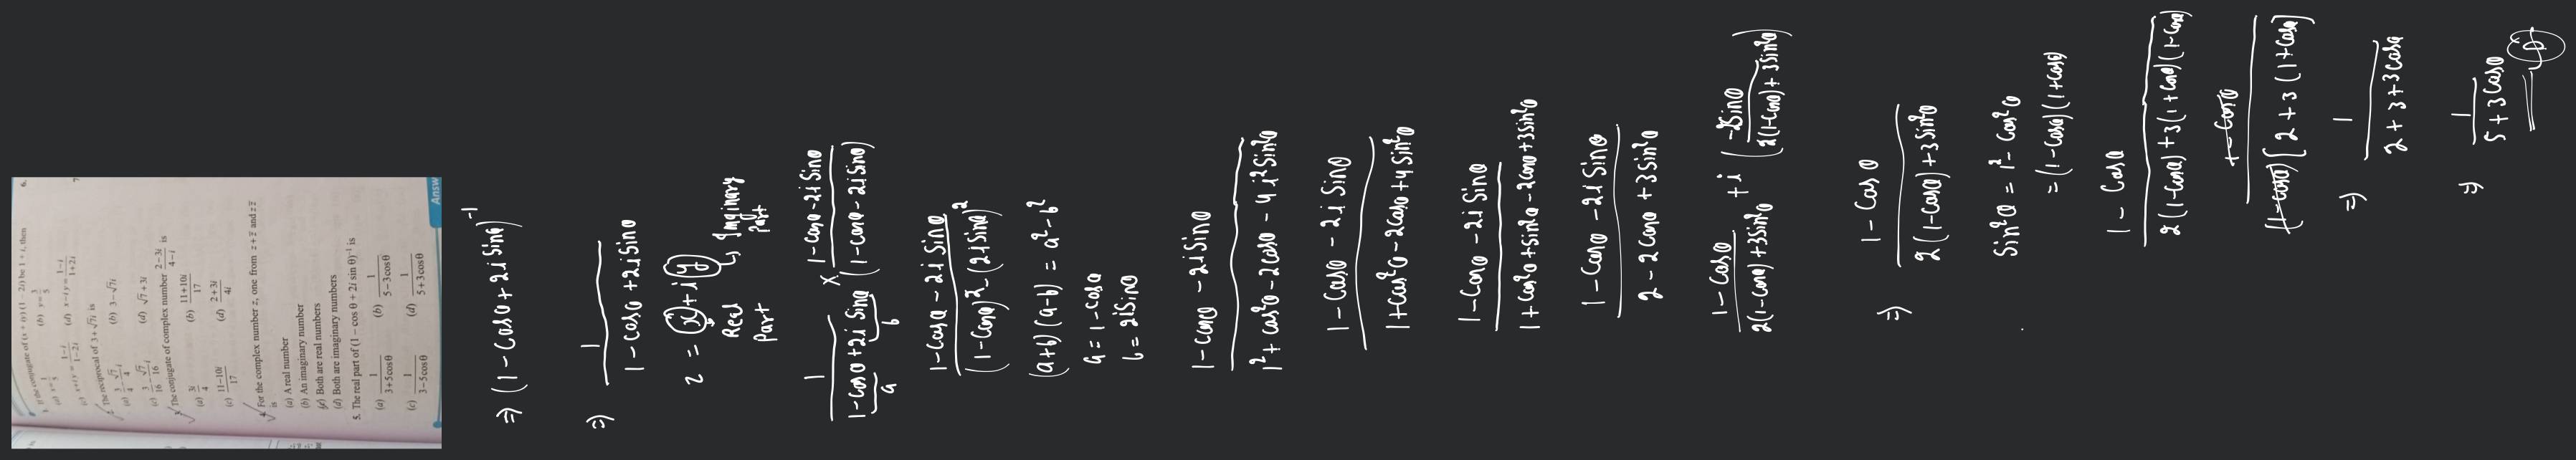 1. If the conjugate of (x + iy)(1 − 2i) be 1 + i, then
(a) x = 1/5
(b) y = 3/5
(c) x + iy = (1−i)/(1−2i)
(d) x − iy = (1−i)/(1+2i)
2. The reciprocal of 3 + √7i is
(a) 3/4 − √7/4 i
(b) 3 − √7i
(c) 3/16 − √7/16 i
(d) √7 + 3i
3. The conjugate of complex number (2−3i)/(4−i) is
(a) 3i/4
(b) (11+10i)/17
(c) (11−10i)/17
(d) (2+3i)/4i
4. For the complex number z, one from z + z̄ and z z̄
is
(a) A real number
(b) An imaginary number
(c) Both are real numbers
(d) Both are imaginary numbers
5. The real part of (1 − cos θ + 2i sin θ)⁻¹ is
(a) 1/(3+5cosθ)
(b) 1/(5−3cosθ)
(c) 1/(3−5cosθ)
(d) 1/(5+3cosθ)
6.
7.
Answ
⇒ (1 − Cosθ + 2iSinθ)⁻¹
⇒ 1/(1 − cosθ + 2iSinθ)
z = x + iy
Real Part
Imginary Part
1/(1−cosθ + 2i Sinθ) × (1−cosθ −2iSinθ)/(1−cosθ −2iSinθ)
a b
(1−cosθ − 2iSinθ)/((1−cosθ)² − (2iSinθ)²)
(a+b)(a−b) = a² − b²
a = 1−cosθ
b = 2iSinθ
(1−cosθ − 2iSinθ)/(1² + cos²θ − 2cosθ − 4i²Sin²θ)
(1 − Cosθ − 2i Sinθ)/(1 + cos²θ − 2cosθ + 4 Sin²θ)
(1−Cosθ − 2i Sinθ)/(1 + cos²θ + sin²θ − 2cosθ + 3sin²θ)
(1 − cosθ − 2i Sinθ)/(2 − 2cosθ + 3Sin²θ)
(1−cosθ)/(2(1−cosθ) + 3Sin²θ) + i (−2Sinθ/(2(1−cosθ) + 3Sin²θ))
⇒ (1 − Cosθ)/(2(1−cosθ) + 3Sin²θ)
Sin²θ = 1² − Cos²θ
= (1−cosθ)(1+cosθ)
(1 − Cosθ)/(2(1−cosθ) + 3(1+cosθ)(1−cosθ))
1−Cosθ/((1−cosθ)[2 + 3(1+cosθ)])
⇒ 1/(2+3+3cosθ)
⇒ 1/(5+3cosθ)